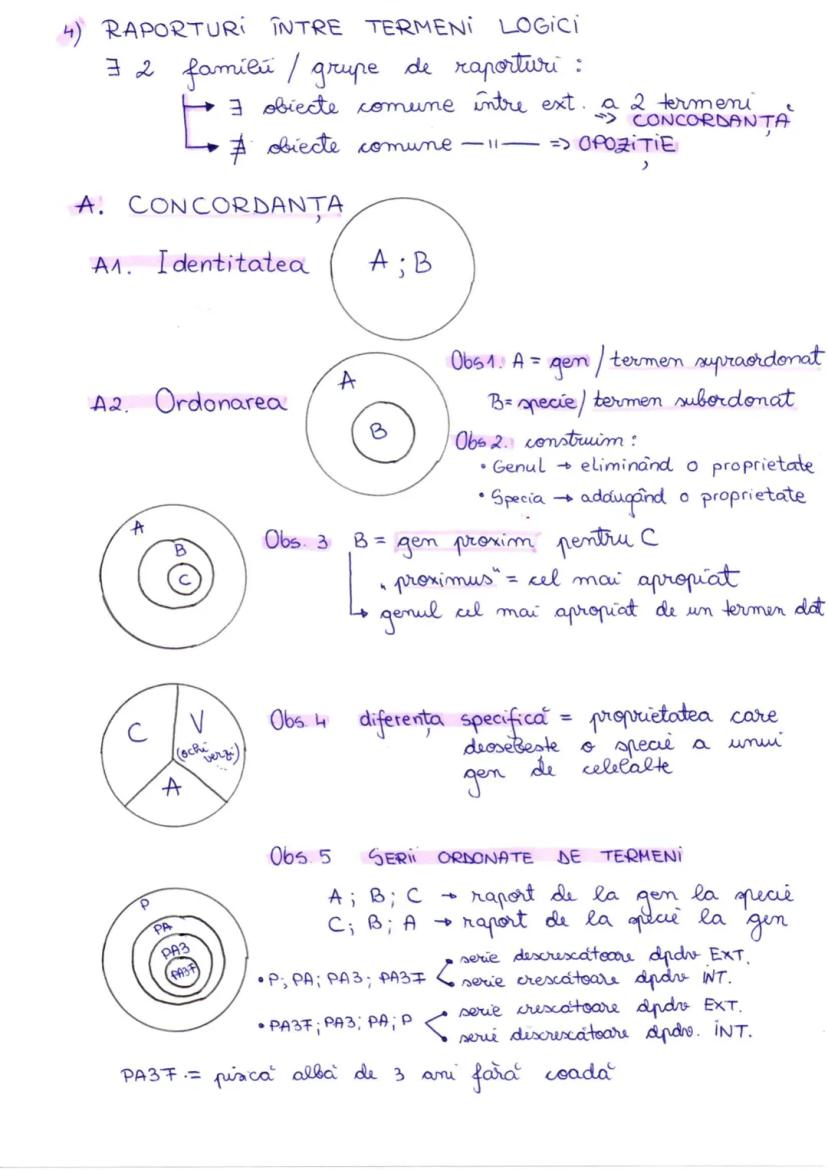 4) RAPORTURI ÎNTRE TERMENI LOGICI
∃ 2 familii / grupe de raporturi :
→ ∃ obiecte comune între ext. a 2 termeni
=> CONCORDANȚĂ
→ ∄ obiecte comune —11— => OPOZIȚIE
A. CONCORDANȚA
A1. Identitatea
A ; B
A2. Ordonarea
A
B
Obs1. A = gen / termen supraordonat
B= specie/ termen subordonat
Obs 2. construim :
• Genul → eliminând o proprietate
• Specia → adăugând o proprietate
A
B
C
Obs. 3 B = gen proxim pentru C
„proximus“ = cel mai apropiat
→ genul cel mai apropiat de un termen dat
C
V
(ochi verzi)
...
A
Obs. 4 diferența specifică = proprietatea care
deosebește o specie a unui
gen de celelalte
Obs. 5 SERII ORDONATE DE TERMENI
A ; B ; C → raport de la gen la specie
C ; B ; A → raport de la specie la gen
P
PA
PA3
PA3F
• P; PA; PA3; PA3F
serie descrescătoare dpdv EXT.
serie crescătoare dpdv INT.
• PA3F; PA3; PA; P
serie crescătoare dpdv EXT.
serie discrescătoare dpdv. INT.
PA3F.= pisică albă de 3 ani fără coadă